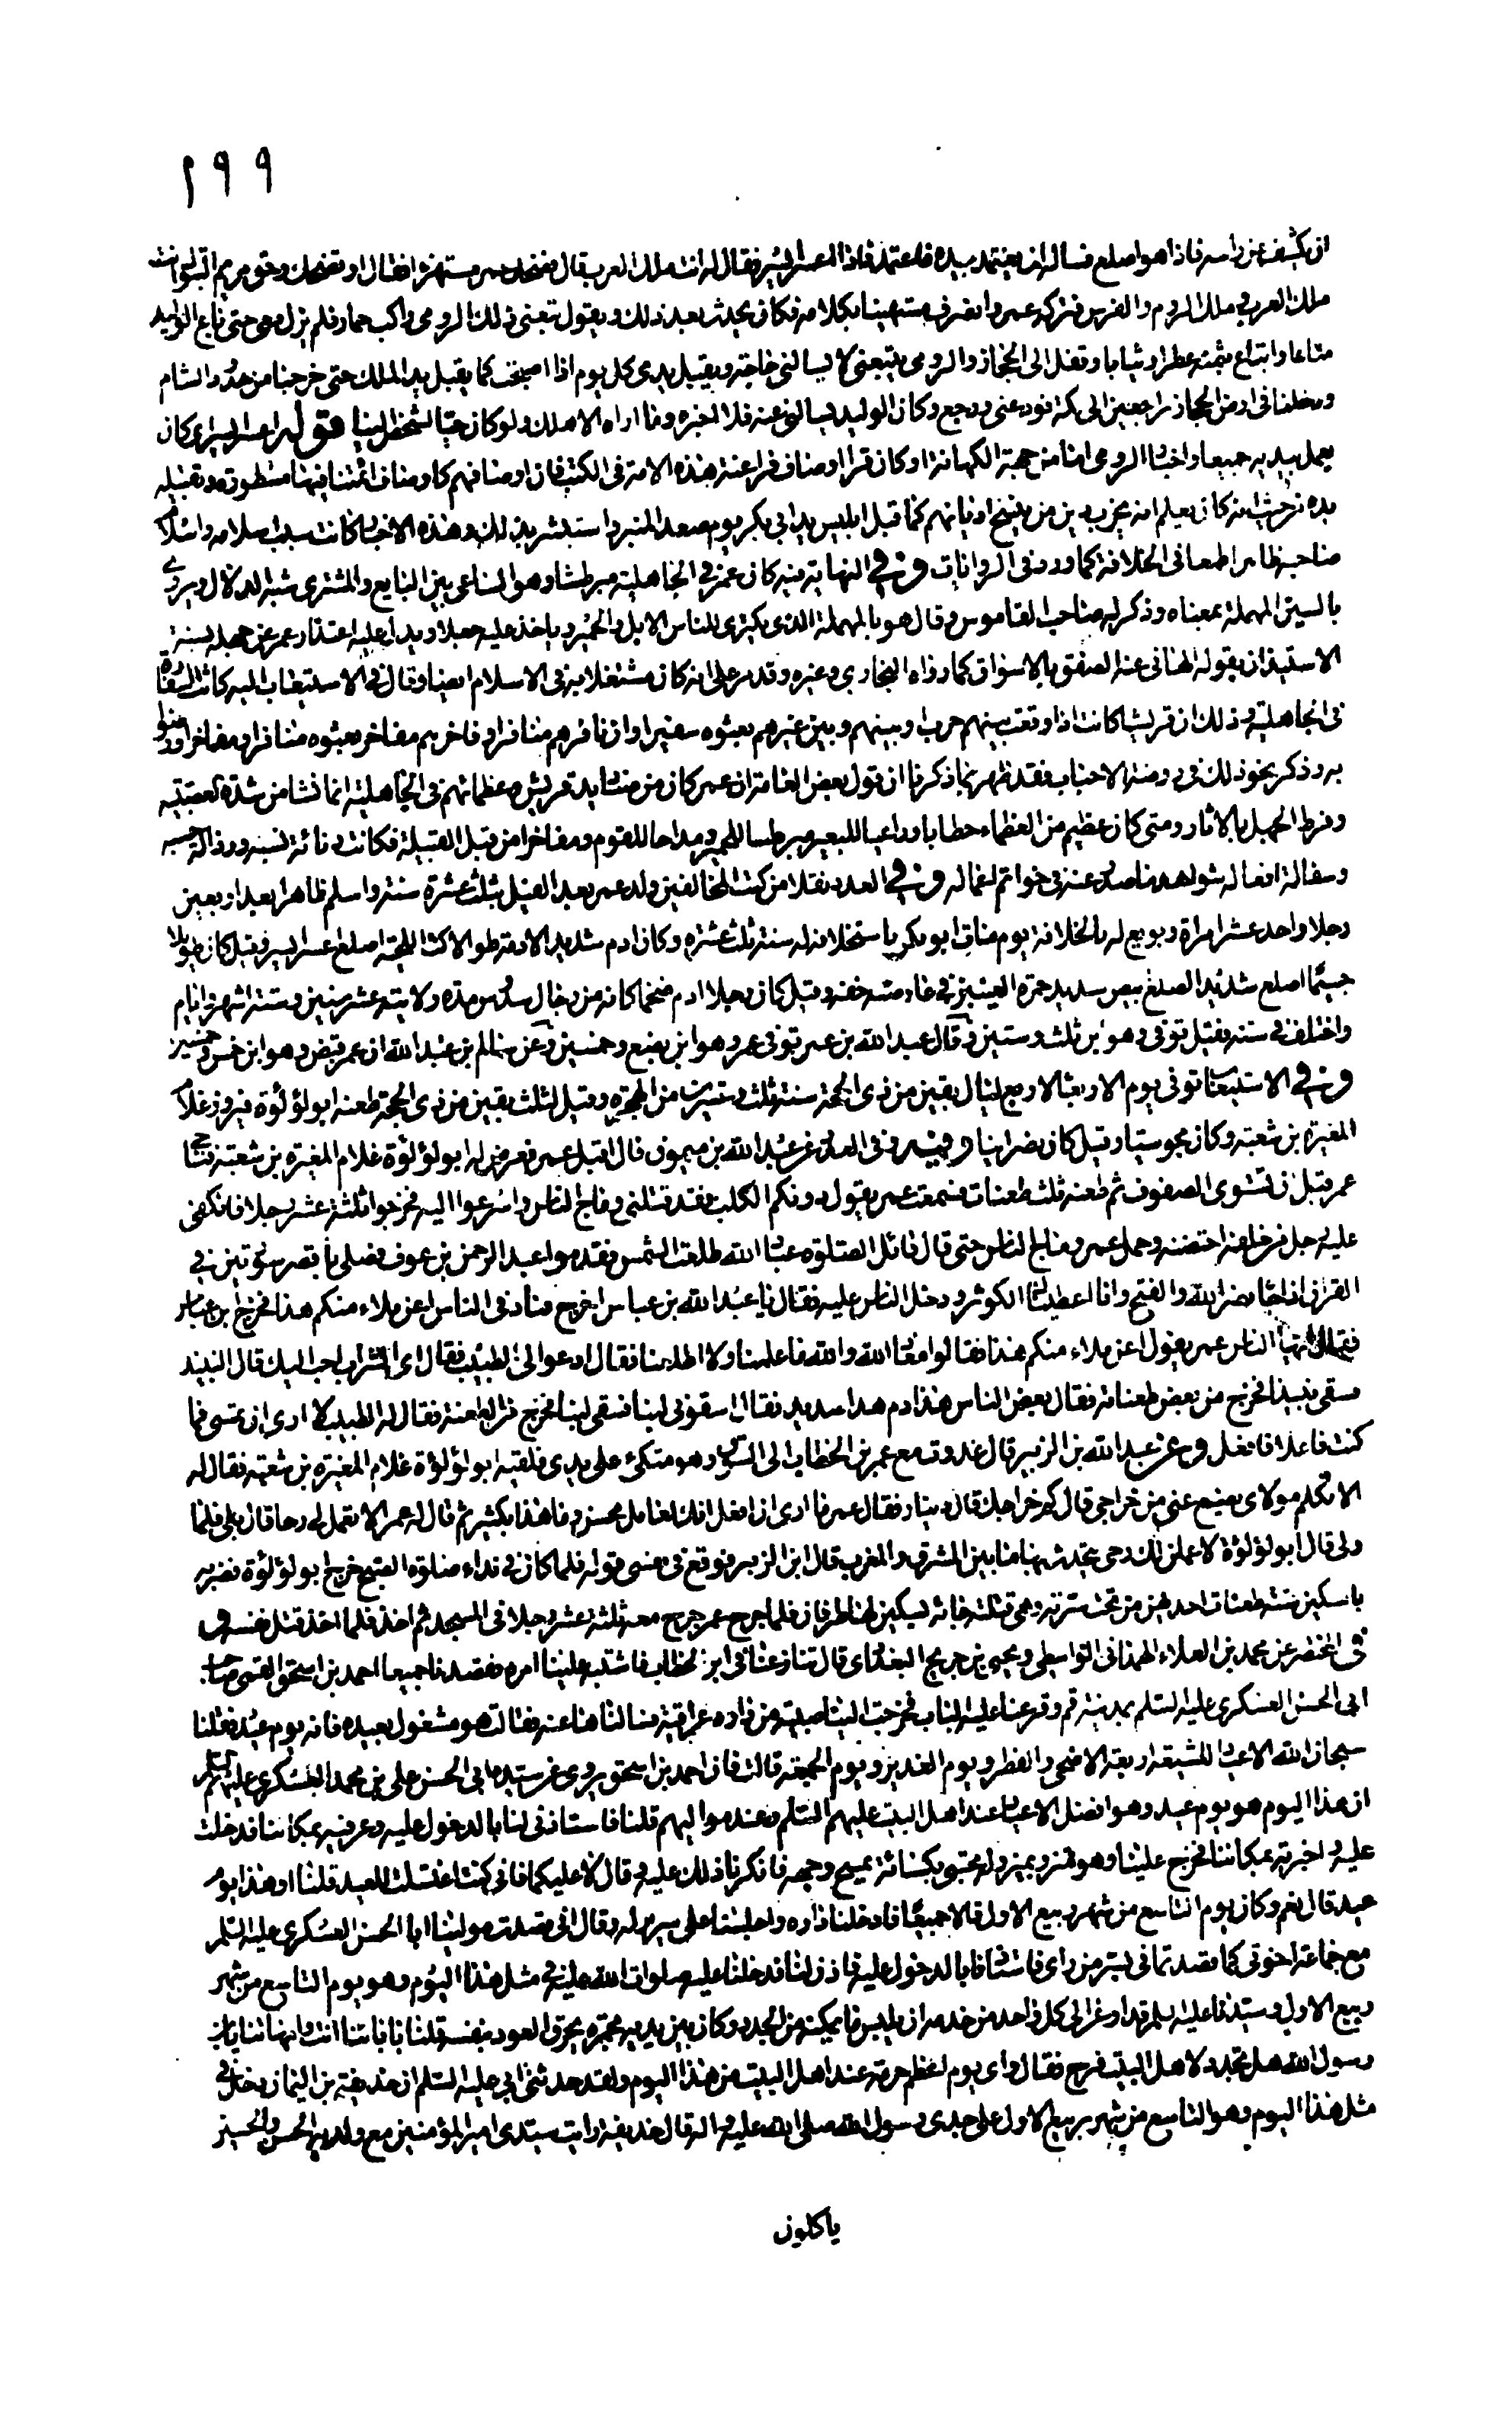 ١٩٩
ان يكشف عن راسه فاذا هو اصلع فساله ان يعتمد بيده فاعتمد فاذا اعسر ايسر فقال له انت ملك العرب قال فضحك عمر مستهزئا فقال او تضحك وحق مريم البتول انت
ملك العرب وملك الروم والفرس فتركه عمر وانصرف مستهينا بكلامه فكان يحدث بعد ذلك ويقول تبعنى ذلك الرومى راكب حمار فلم يزل معى حتى باع الوليد
متاعا وابتاع بثمنه عطرا وثيابا وقفل الى الحجاز والرومى يتبعنى لا يسالنى حاجة ويقبل يدى كل يوم اذا اصبحت كما يقبل يد الملك حتى خرجنا من حدود الشام
ودخلنا فى ارض الحجاز راجعين الى مكة فودعنى ورجع وكان الوليد يسالنى عنه فلا اخبره وما اراه الا هلك ولو كان حيا لشخص الينا قوله اعسر ايسر اى كان
يعمل بيديه جميعا واخبار الرومى اما من جهة الكهانة او كان قرا اوصاف فراعنة هذه الامة فى الكتب فان اوصافهم كاوصاف ائمتنا فيها مسطورة وتقبيله
يده من حيث انه كان يعلم انه يخرب دين من ينسخ اديانهم كما قبل ابليس يد ابى بكر يوم صعد المنبر واستبشر بذلك وهذه الاخبار كانت سبب اسلامه واسلام
صاحبه ظاهرا طمعا فى الخلافة كما ورد فى الروايات وفى النهاية فيه كان عمر فى الجاهلية مبرطشا وهو الساعى بين البايع والمشترى شبه الدلال ويروى
بالسين المهملة بمعناه وذكر له صاحب القاموس وقال هو بالمهملة الذى يكترى للناس الابل والحمير وياخذ عليه جعلا ويدل عليه اعتذار عمر عن جهله بسنة
الاستيذان بقوله الهانى عنه الصفق بالاسواق كما رواه البخارى وغيره وقد مر على انه كان مشتغلا به فى الاسلام ايضا وقال فى الاستيعاب اليه كانت السفارة
فى الجاهلية وذلك ان قريشا كانت اذا وقعت بينهم حرب او بينهم وبين غيرهم بعثوه سفيرا وان نافرهم منافر او فاخرهم مفاخر بعثوه منافرا ومفاخرا ورضوا
به وذكر نحو ذلك فى روضة الاحباب فقد ظهر بما ذكرنا ان قول بعض العامة ان عمر كان من صناديد قريش وعظمائهم فى الجاهلية انما نشا من شدة تعصبه
وفرط الجهل بالاثار ومتى كان عظيم من العظماء حطابا وراعيا للبعير ومبرطسا للحمير ومداحا للقوم ومفاخرا من قبل القبيلة فكانت دنائة نسبه ورذالة حسبه
وسفالة افعاله شواهد ما صدر عنه فى خواتم اعماله وفى العدد نقلا من كتب المخالفين ولد عمر بعد الفيل بثلث عشرة سنة واسلم ظاهرا بعد اربعين
رجلا واحد عشر امراة وبويع له بالخلافة يوم مات ابو بكر باستخلافه له سنة ثلث عشرة وكان ادم شديد الادمة طوالا كث اللحية اصلع اعسر ايسر وقيل كان طويلا
جسيما اصلع شديد الصلع ابيض شديد حمرة العينين فى عارضته خفة وقيل كان رجلا ادم ضخما كانه من رجال سدوس مدة ولايته عشر سنين وستة اشهر وايام
واختلف فى سنه فقيل توفى وهو ابن ثلث وستين وقال عبد الله بن عمر توفى عمر وهو ابن بضع وخمسين وعن سالم بن عبد الله ان عمر قبض وهو ابن خمس وخمسين
وفى الاستيعاب توفى يوم الاربعاء لاربع ليال بقين من ذى الحجة سنة ثلث وعشرين من الهجرة وقيل لثلث بقين من ذى الحجة طعنه ابو لؤلؤة فيروز غلام
المغيرة بن شعبة وكان مجوسيا وقيل كان نصرانيا وفيه وفى العدد عن عبد الله بن ميمون قال اقبل عمر فعرض له ابو لؤلؤة غلام المغيرة بن شعبة فناجى
عمر قبل ان تستوى الصفوف ثم طعنه ثلث طعنات فسمعت عمر يقول دونكم الكلب فقد قتلنى وماج الناس واسرعوا اليه فخرجوا ثلثة عشر رجلا فانكفى
عليه رجل من خلفه احتضنه وحمل عمر وماج الناس حتى قال قائل الصلوة عباد الله طلعت الشمس فقدموا عبد الرحمن بن عوف فصلى باقصر سورتين فى
القران اذا جاء نصر الله والفتح وانا اعطيناك الكوثر ودخل الناس عليه فقال يا عبد الله بن عباس اخرج فناد فى الناس اعن ملاء منكم هذا فخرج ابن عباس
فقال ايها الناس عمر يقول اعن ملاء منكم هذا فقالوا معاذ الله والله ما علمنا ولا اطلعنا فقال ادعوا لى الطبيب فقال اى الشراب احب اليك قال النبيذ
فسقى نبيذا فخرج من بعض طعناته فقال بعض الناس هذا دم هذا صديد فقال اسقونى لبنا فسقى لبنا فخرج من الطعنة فقال له الطبيب لا ارى ان تمسى فما
كنت فاعلا فافعل وعن عبد الله بن الزبير قال غدوت مع عمر بن الخطاب الى السوق وهو متكئ على يدى فلقيه ابو لؤلؤة غلام المغيرة بن شعبة فقال له
الا تكلم مولاى يضع عنى من خراجى قال كم خراجك قال دينار فقال عمر ما ارى ان افعل انك لعامل محسن وما هذا بكثير ثم قال له عمر الا تعمل لى رحا قال بلى فلما
ولى قال ابو لؤلؤة لاعملن لك رحى يتحدث بها ما بين المشرق والمغرب قال ابن الزبير فوقع فى نفسى قوله فلما كان فى نداء صلوة الصبح خرج ابو لؤلؤة فضربه
بالسكين ستة طعنات احدهن من تحت سرته وهى قتلته جائه بسكين لها طرفان فلما جرح عمر جرح معه ثلثة عشر رجلا فى المسجد ثم اخذ فلما اخذ قتل نفسه وفى
فى المختصر عن محمد بن العلاء الهمدانى الواسطى ويحيى بن جريح البغدادى قال تنازعنا فى ابن الخطاب فاشتبه علينا امره فقصدنا جميعا احمد بن اسحق القمى صاحب
ابى الحسن العسكرى عليه السلم بمدينة قم وقرعنا عليه الباب فخرجت الينا صبية من داره عراقية فسالناها عنه فقالت هو مشغول بعيده فانه يوم عيد فقلنا
سبحان الله الاعياد للشيعة اربعة الاضحى والفطر ويوم الغدير ويوم الجمعة قالت فان احمد بن اسحق يروى عن سيده ابى الحسن على بن محمد العسكرى عليهما السلم
ان هذا اليوم هو يوم عيد وهو افضل الاعياد عند اهل البيت عليهم السلم وعند مواليهم قلنا فاستاذنى لنا بالدخول عليه وعرفيه بمكاننا فدخلت
عليه واخبرته بمكاننا فخرج علينا وهو متزر بميزر له محتبى بكسائه يمسح وجهه فانكرنا ذلك عليه قال لا عليكما فانى كنت اغتسلت للعيد قلنا اوهذا يوم
عيد قال نعم وكان يوم التاسع من شهر ربيع الاول قالا جميعا فادخلنا داره واجلسنا على سرير له وقال انى قصدت مولينا ابا الحسن العسكرى عليه السلم
مع جماعة اخوتى كما قصدتمانى بسر من راى فاستاذنا بالدخول عليه فاذن لنا فدخلنا عليه صلوات الله عليه فى مثل هذا اليوم وهو يوم التاسع من شهر
ربيع الاول وسيدنا عليه السلم قد اوعز الى كل واحد من خدمه ان يلبس ما يمكنه من الجدد وكان بين يديه مجمرة يحرق العود بنفسه قلنا بابائنا انت وامهاتنا يابن
رسول الله هل تجدد لاهل البيت فرح فقال واى يوم اعظم حرمة عند اهل البيت من هذا اليوم ولقد حدثنى ابى عليه السلم ان حذيفة بن اليمان دخل فى
مثل هذا اليوم وهو التاسع من شهر ربيع الاول على جدى رسول الله صلى الله عليه واله قال حذيفة رايت سيدى امير المؤمنين مع ولديه الحسن والحسين
ياكلون